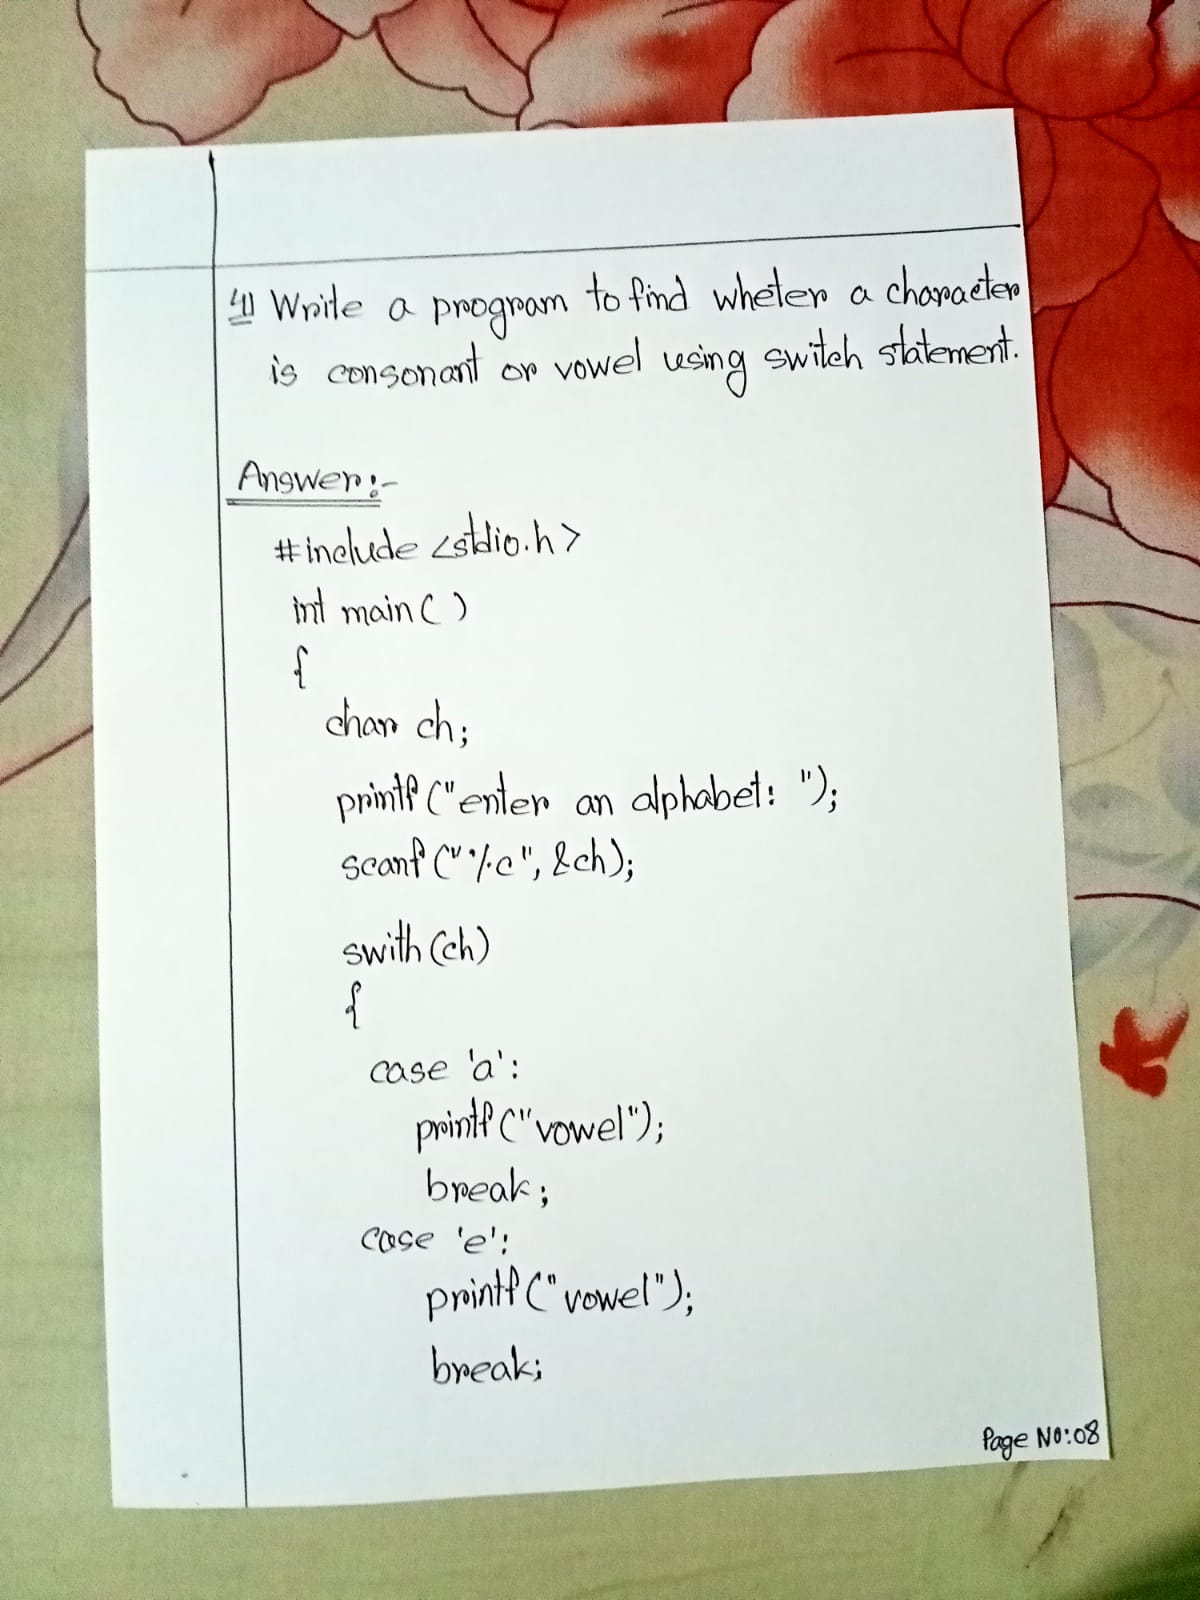 4) Write a program to find wheter a character
is consonant or vowel using switch statement.
Answer:-
#include <stdio.h>
int main( )
{
char ch;
printf ("enter an alphabet: ");
scanf ("%c", &ch);
swith (ch)
{
case 'a':
printf ("vowel");
break;
case 'e':
printf ("vowel");
break;
Page No:08